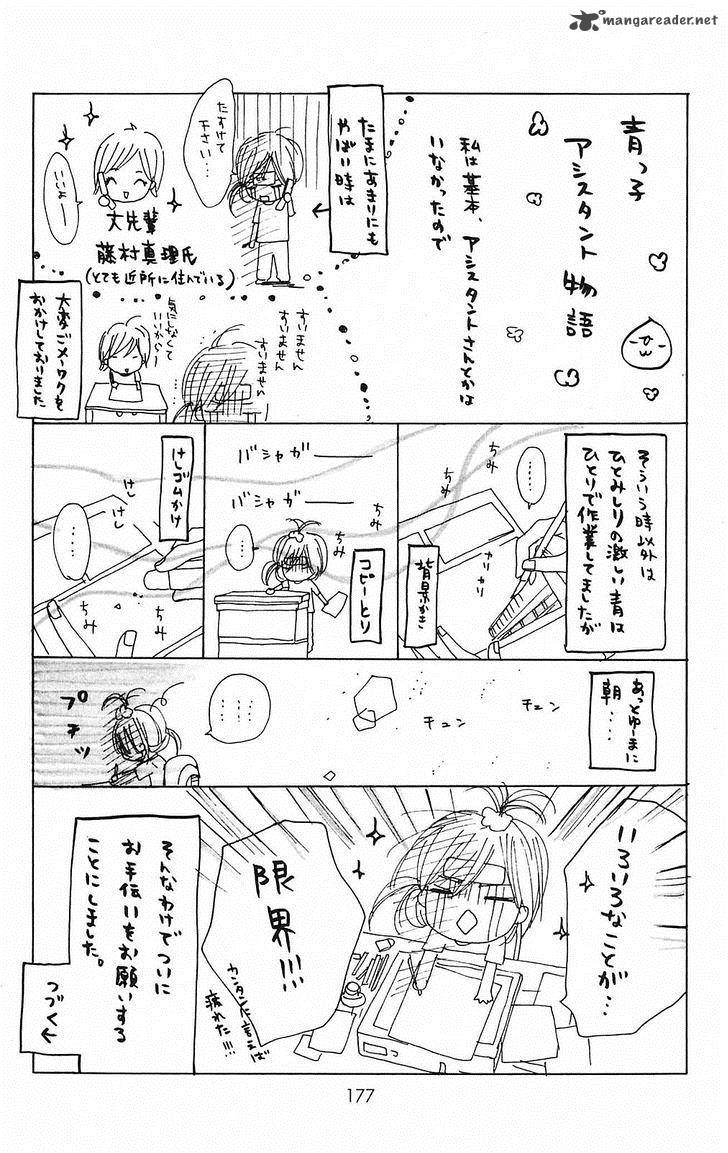 mangareader.net
青っ子
アシスタント物語
私は基本、アシスタントさんとかは
いなかったので
たまにあまりにも
やばい時は
たすけて
下さい…
いいよー
大先輩
藤村真理氏
(とても近所に住んでいる)
すいません
すいません
すいません
気にしなくて
いいから〜
大変ごメーワクを
おかけしておりました
そういう時以外は
ひとみしりの激しい青は
ひとりで作業してましたが
ちみ
ちみ
‥‥
カリカリ
背景かき
バシャガー
バシャガー
ちみ
ちみ
…
コピーとり
けしゴムかけ
けし
けし
‥‥
ちみ
ちみ
あっとゆーまに
朝‥‥
チュン
チュン
‥‥
‥‥
プチッ
いろいろなことが…
限界!!!
カンタンに言えば
疲れた!!!
そんなわけでついに
お手伝いをお願いする
ことにしました。
つづく←
177